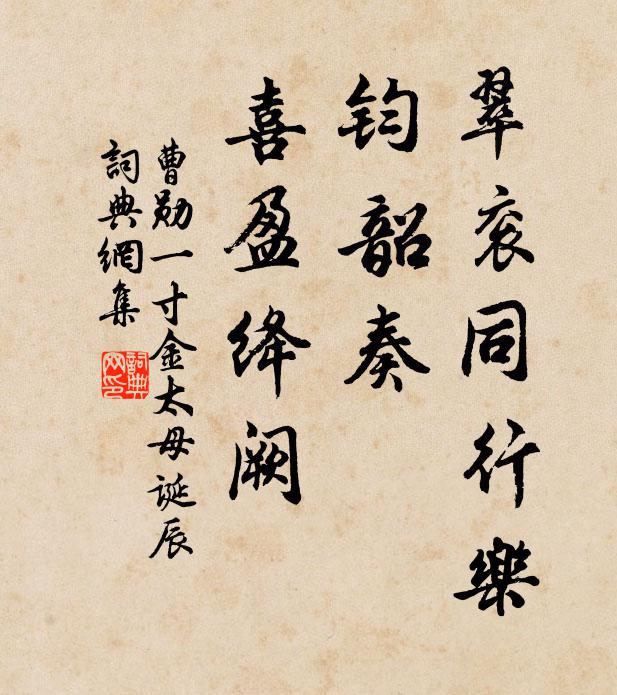 翠衮同行樂
钧韶奏
喜盈绛阙
曹勛一寸金太母诞辰
詞典網集
詞典网印